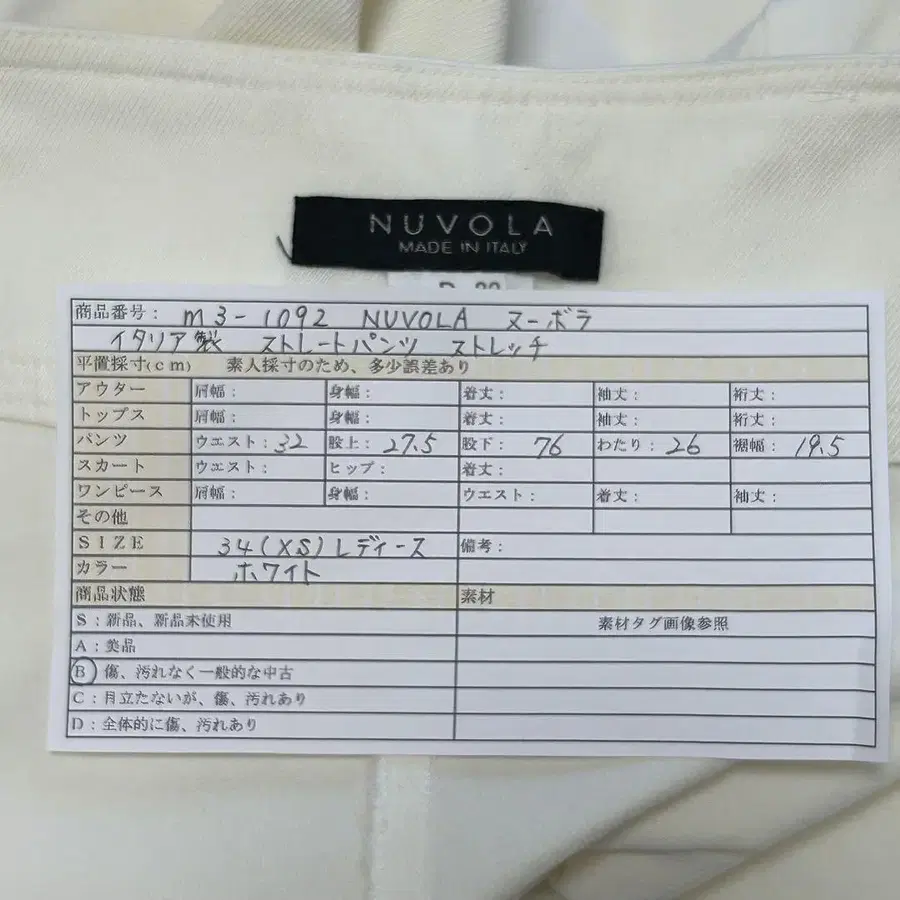 NUVOLA
MADE IN ITALY
商品番号： m3-1092 NUVOLA ヌーボラ
イタリア製 ストレートパンツ ストレッチ
平置採寸(cm) 素人採寸のため、多少誤差あり
アウター 肩幅： 身幅： 着丈： 袖丈： 裄丈：
トップス 肩幅： 身幅： 着丈： 袖丈： 裄丈：
パンツ ウエスト：32 股上：27.5 股下：76 わたり：26 裾幅：19.5
スカート ウエスト： ヒップ： 着丈：
ワンピース 肩幅： 身幅： ウエスト： 着丈： 袖丈：
その他
SIZE 34(XS)レディース 備考：
カラー ホワイト
商品状態 素材
S：新品、新品未使用 素材タグ画像参照
A：美品
B 傷、汚れなく一般的な中古
C：目立たないが、傷、汚れあり
D：全体的に傷、汚れあり